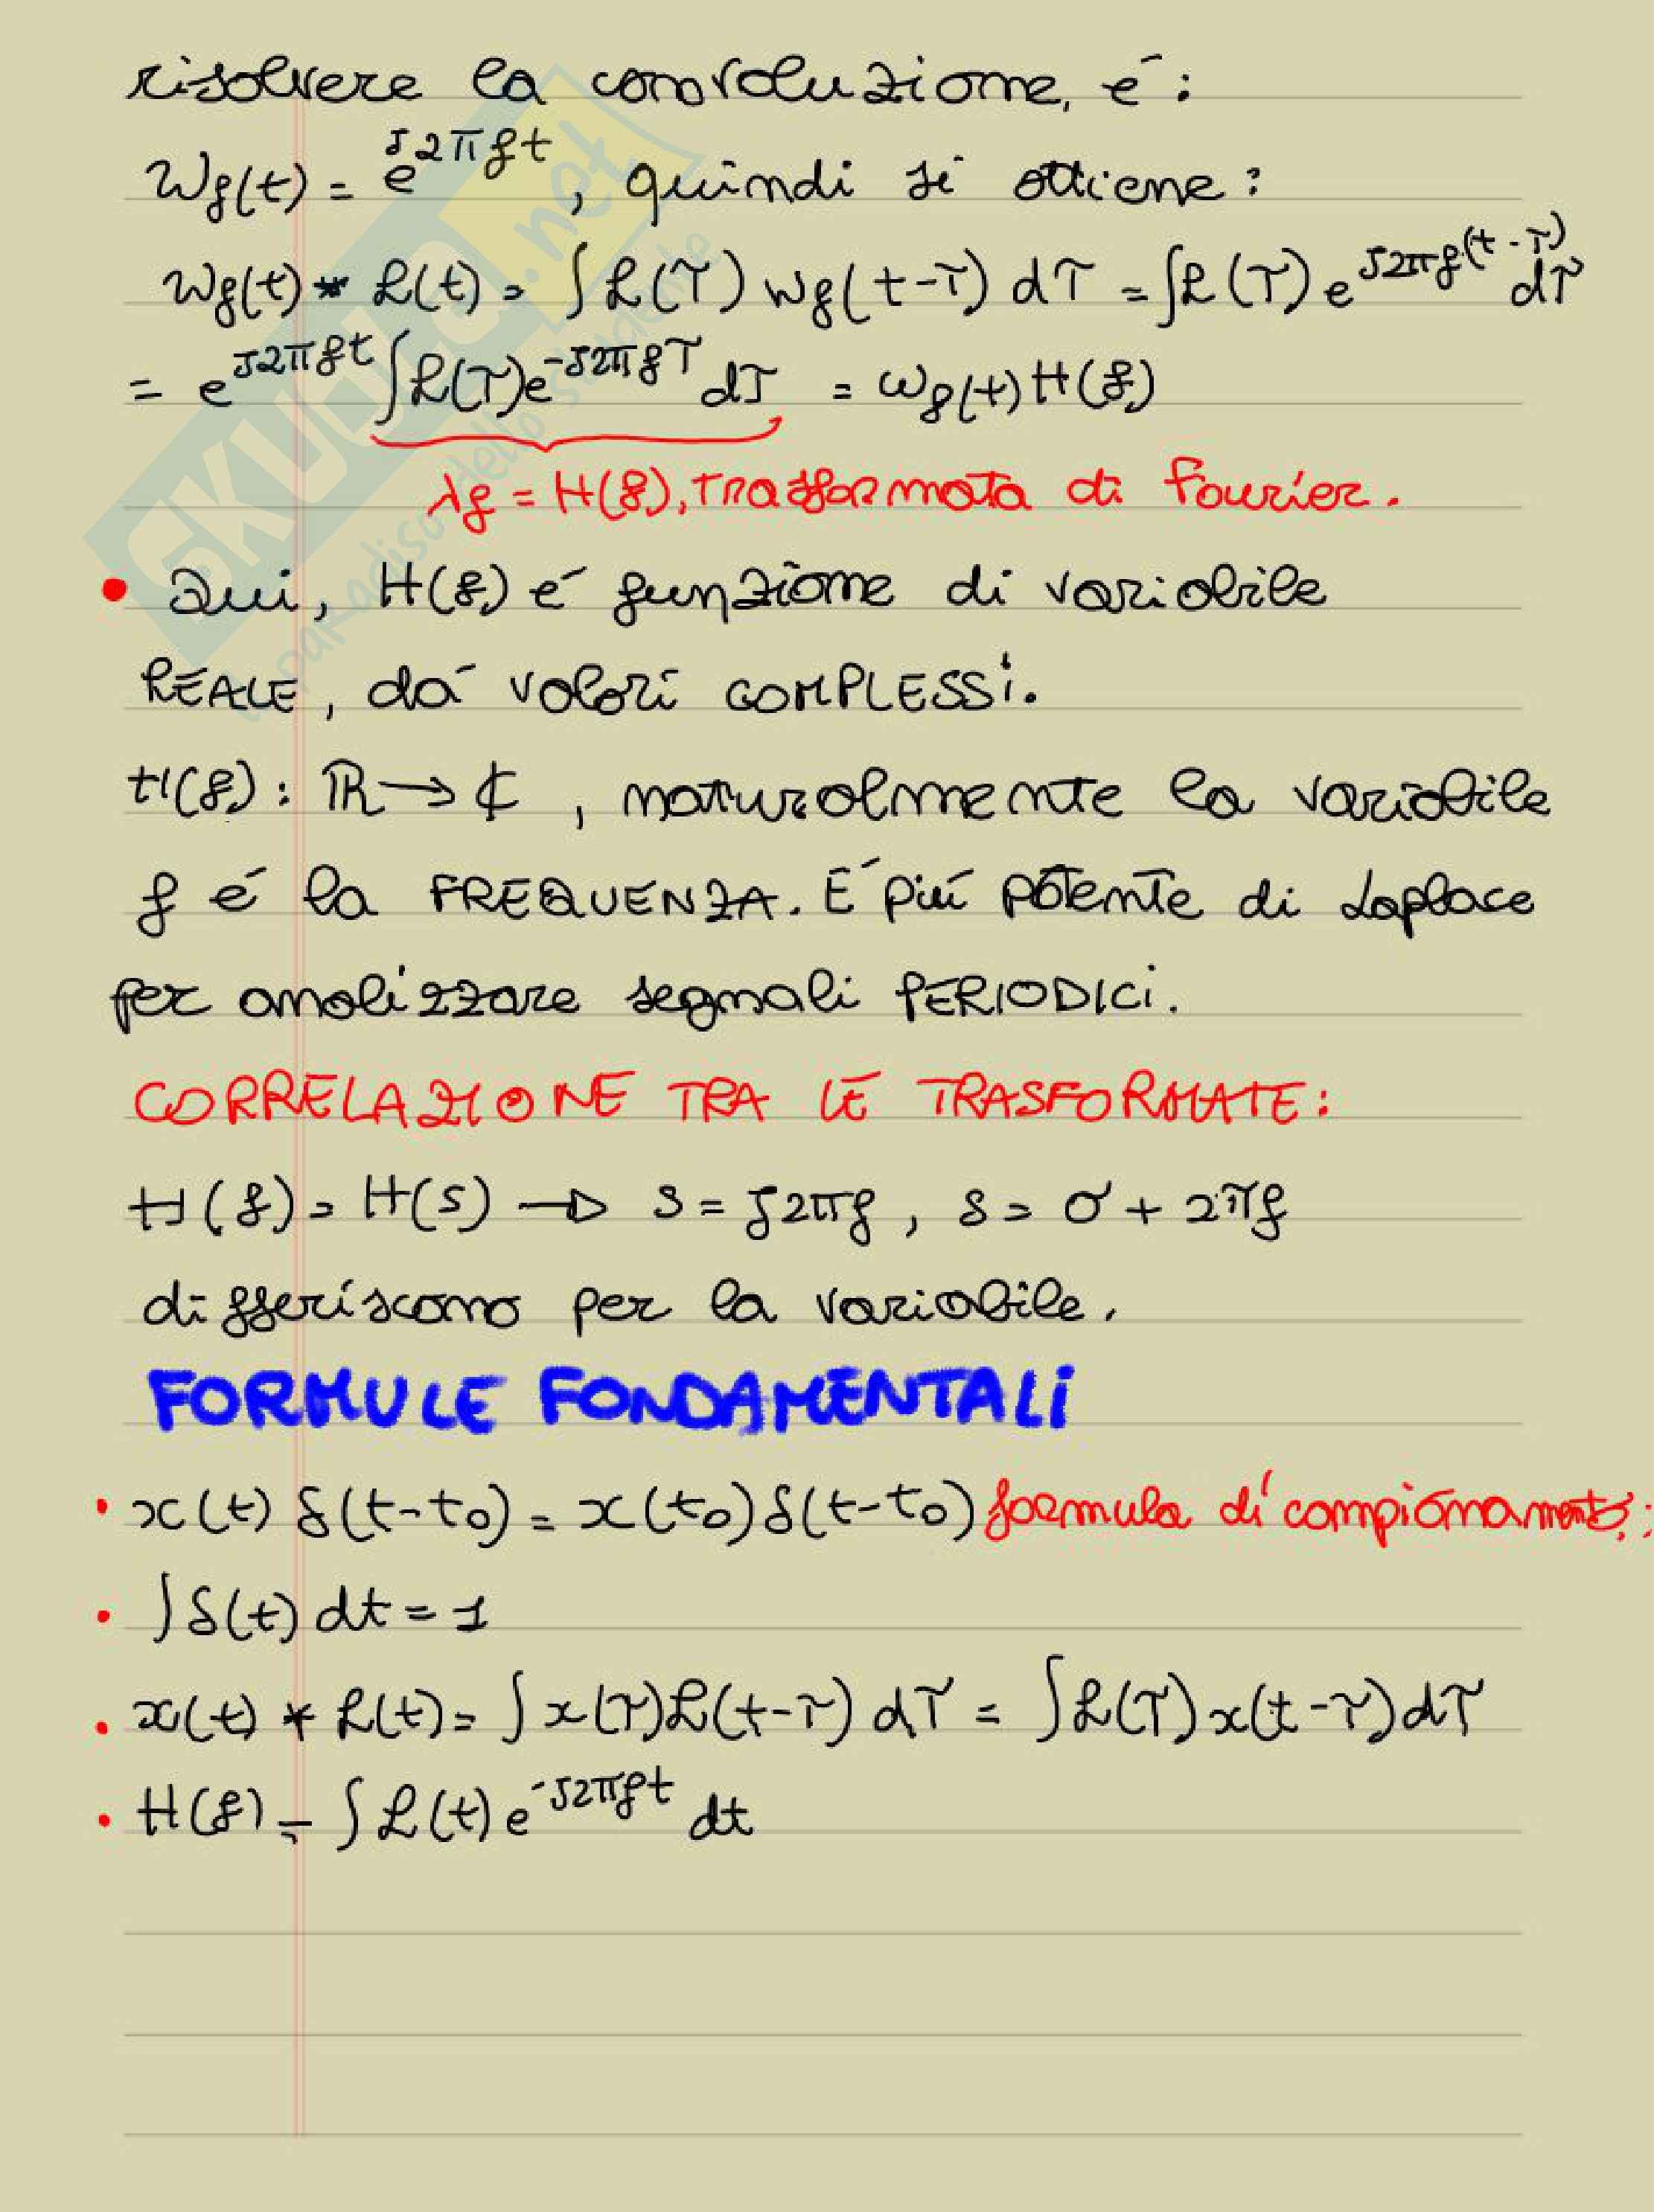 risolvere la convoluzione, é:
Wf(t) = e^j2πft, quindi si ottiene:
Wf(t) * h(t) = ∫h(τ) wf(t-τ) dτ = ∫h(τ) e^j2πf(t-τ) dτ
= e^j2πft ∫h(τ)e^-j2πfτ dτ = wf(t) H(f)
λf = H(f), trasformata di Fourier.
• Qui, H(f) é funzione di variabile
REALE, dá valori COMPLESSi.
H(f): ℝ → ℂ, naturalmente la variabile
f é la FREQUENZA. É piú potente di Laplace
per analizzare segnali PERIODICi.
CORRELAZIONE TRA LE TRASFORMATE:
H(f) = H(s) → s = j2πf, s = σ + 2πf
differiscono per la variabile.
FORMULE FONDAMENTALi
• x(t) δ(t-t0) = x(t0) δ(t-t0) formula di campionamento;
• ∫δ(t) dt = 1
• x(t) * h(t) = ∫x(τ)h(t-τ) dτ = ∫h(τ) x(t-τ) dτ
• H(f) = ∫h(t) e^-j2πft dt
SKUOLA.net
il paradiso dello studente